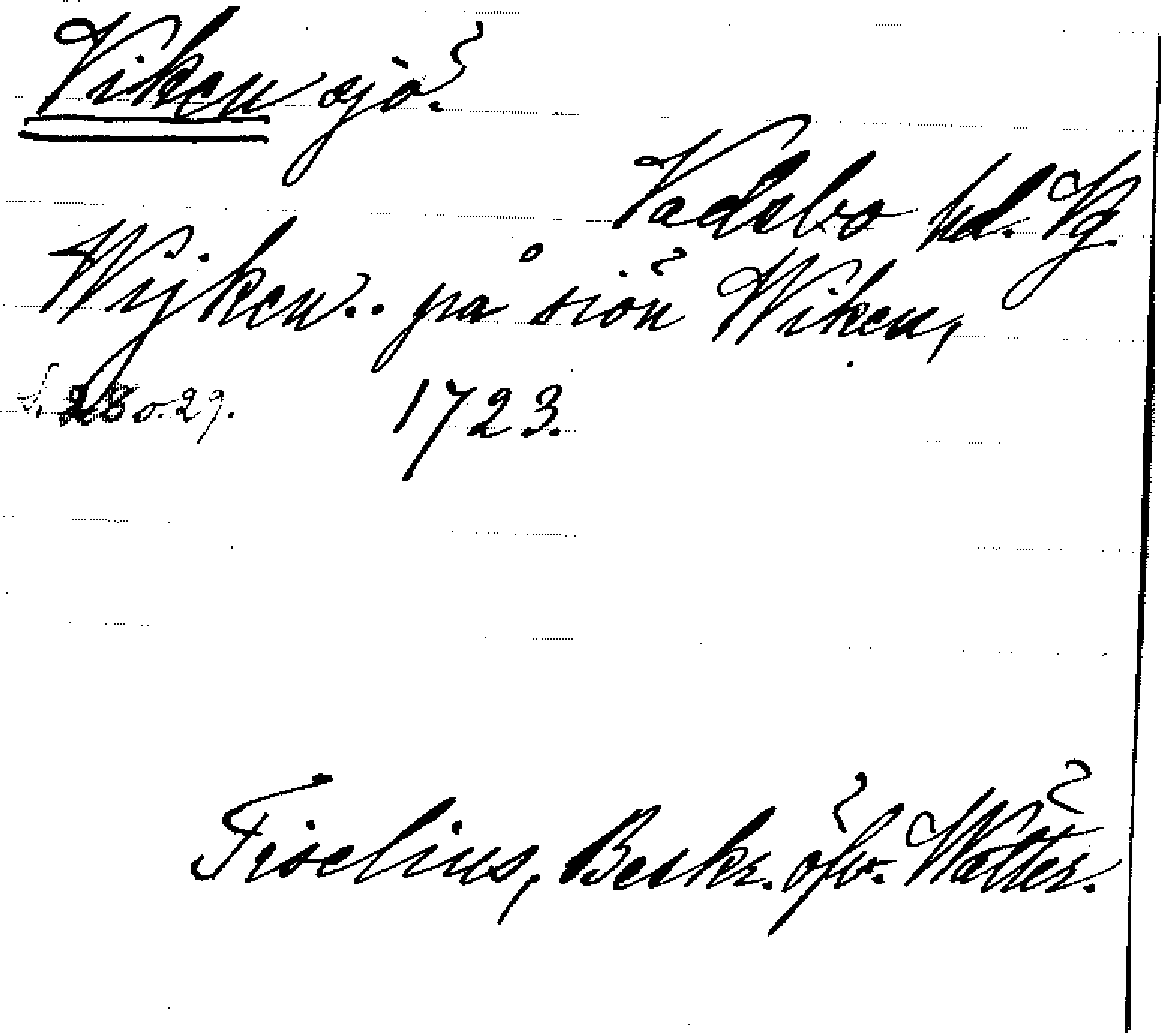 Viken sjö.
Vadsbo hd. Vg.
Wijken.. på siön Wiken,
s. 28 o. 29. 1723.
Tiselius, Beskr. öfv. Wätter.